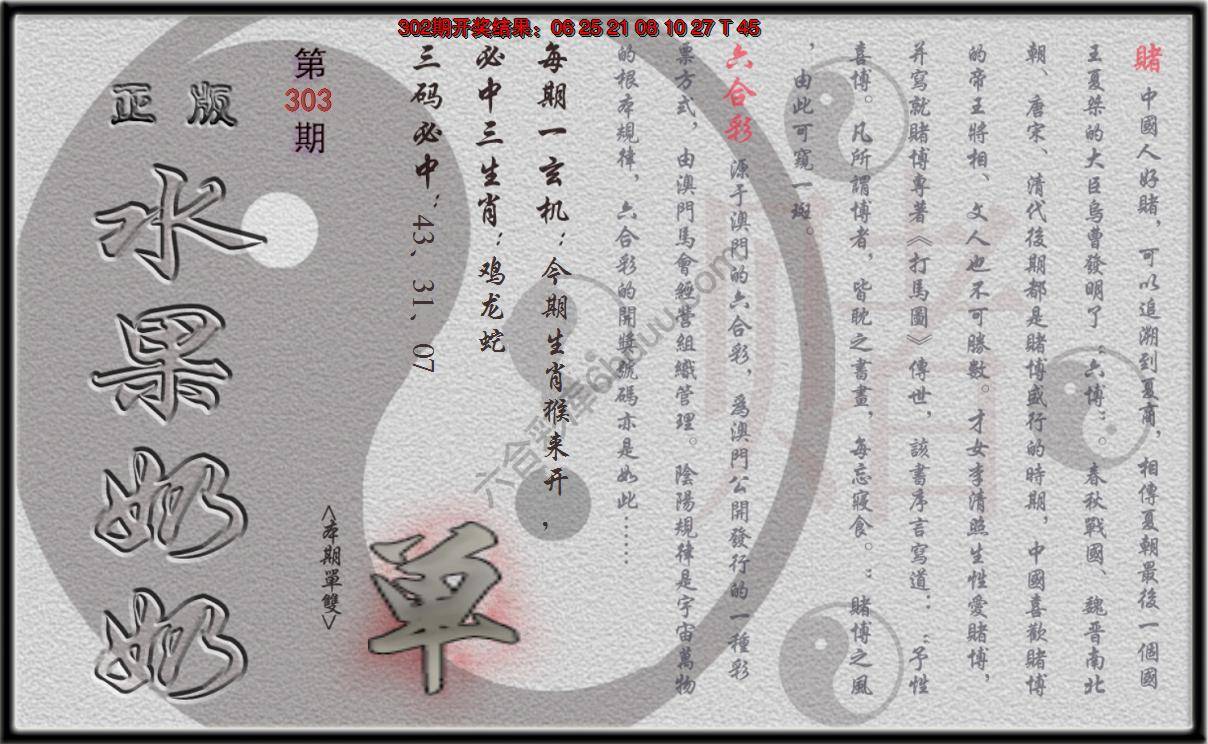 302期开奖结果：06 25 21 08 10 27 T 45
賭 中國人好賭，可以追溯到夏商，相傳夏朝最後一個國
王夏桀的大臣烏曹發明了“六博”。春秋戰國、魏晉南北
朝、唐宋、清代後期都是賭博盛行的時期，中國喜歡賭博
的帝王將相、文人也不可勝數。才女李清照生性愛賭博，
并寫就賭博專著《打馬圖》傳世，該書序言寫道：“予性
喜博。凡所謂博者，皆耽之書畫，每忘寢食。：賭博之風
，由此可窺一斑。
六合彩 源于澳門的六合彩，為澳門公開發行的一種彩
票方式，由澳門馬會經營組織管理。陰陽規律是宇宙萬物
的根本規律，六合彩的開獎號碼亦是如此……
每期一玄机：今期生肖猴来开，
必中三生肖：鸡龙蛇
三码必中：43、31、07
第
303
期
<本期單雙>
單
正版
水果奶奶
赌
六合彩库6hduu.com